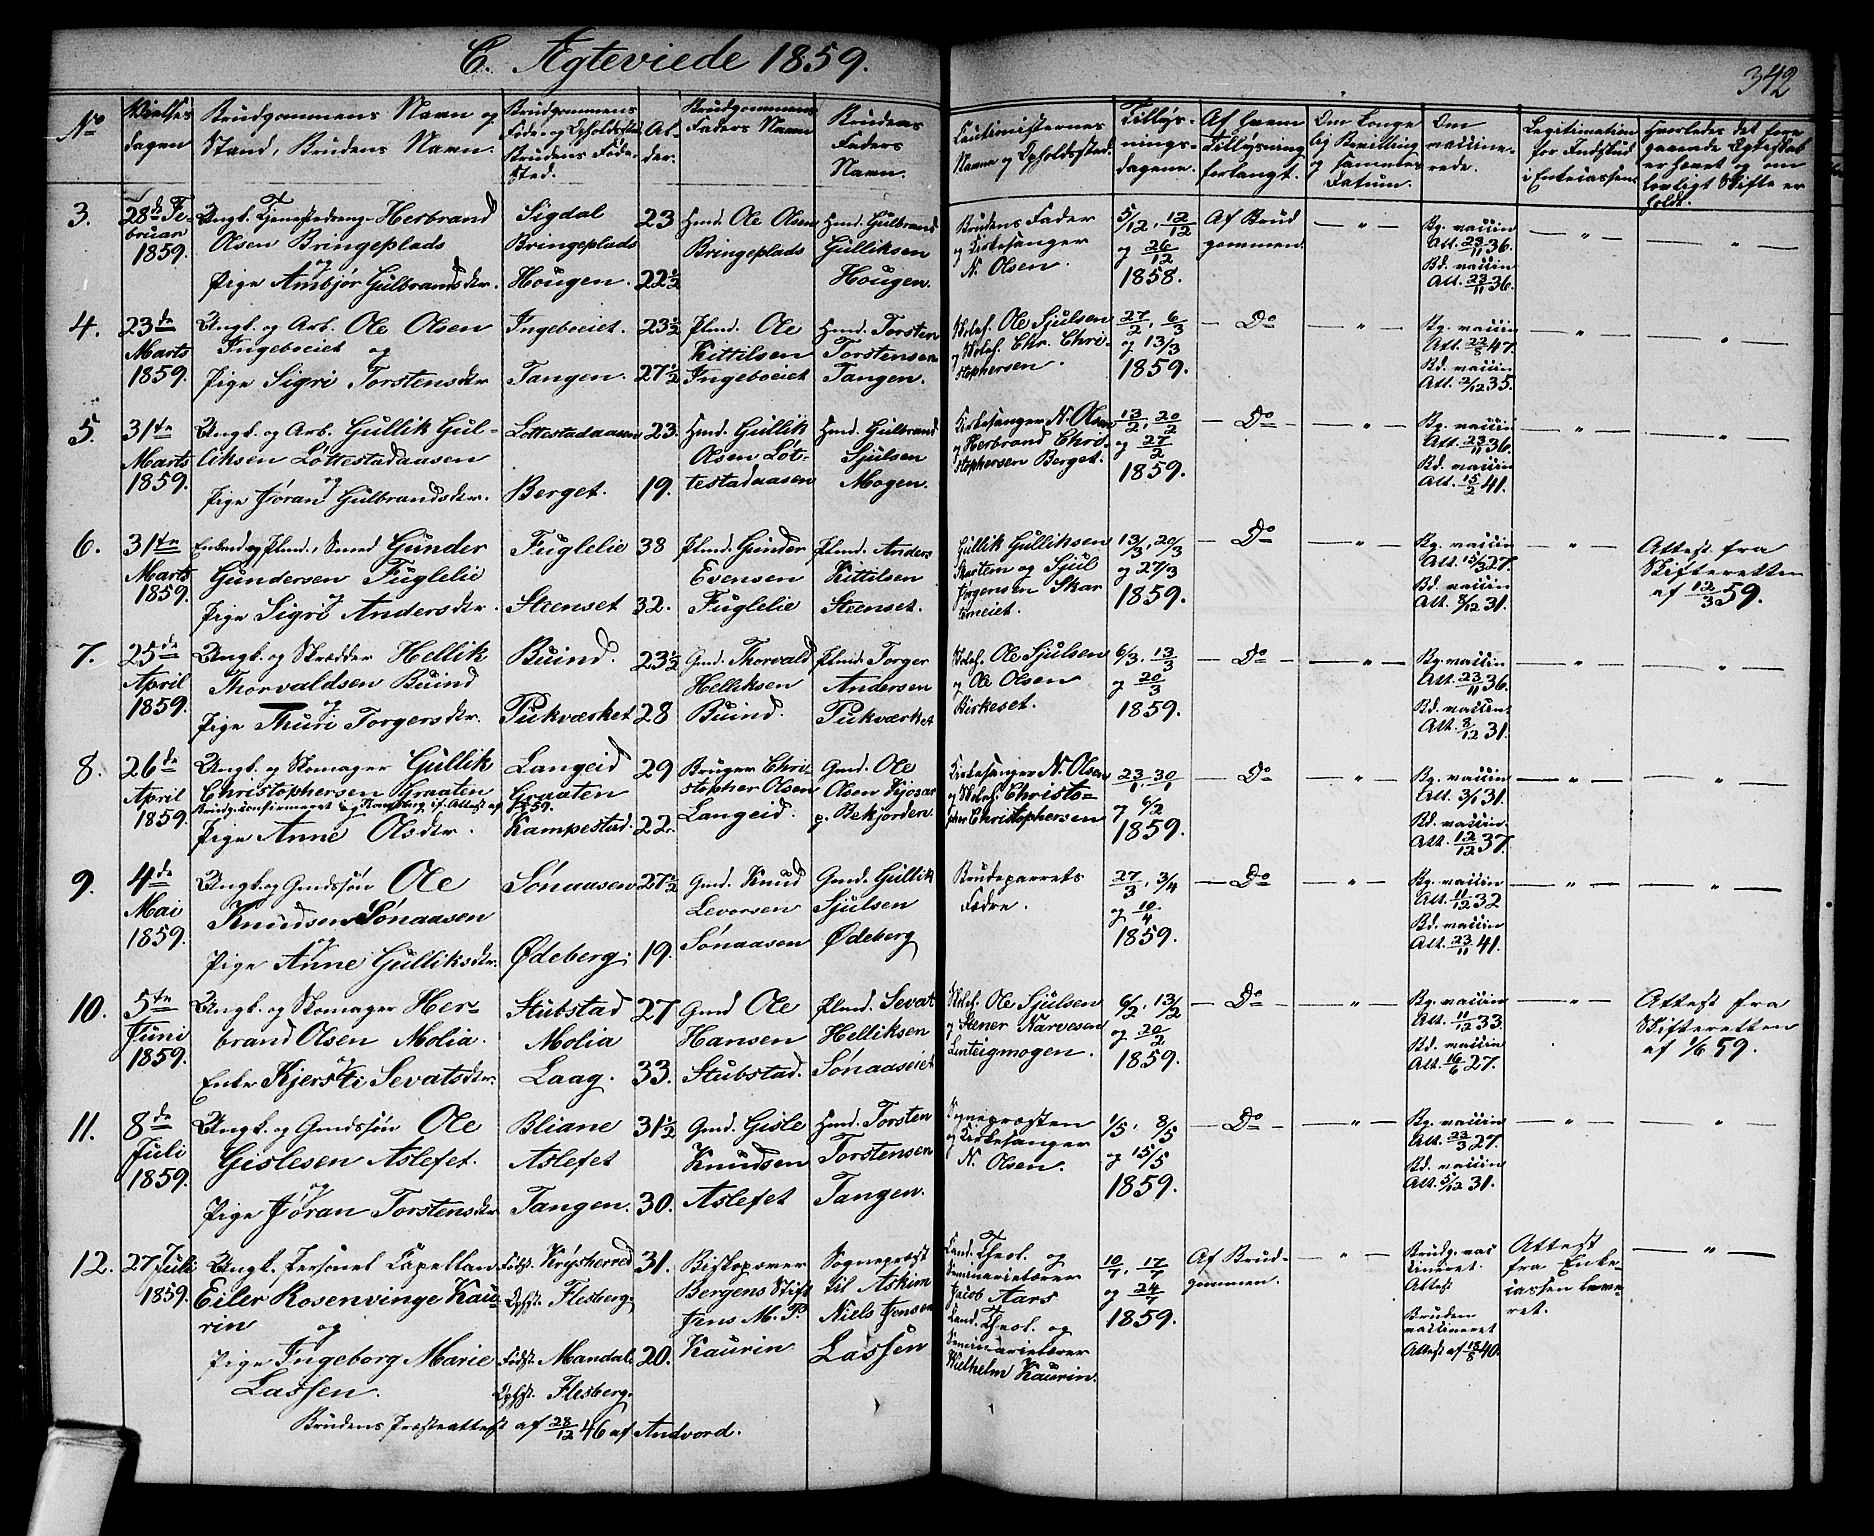 C. Ægteviede 1859.
342
No
Vielses
dagen
Brudgommens Navn og
Stand, Brudens Navn.
Brudgommens
Føde- og Opholdssted
Brudens Føde-
sted.
Al-
der.
Brudgommens
Faders Navn
Brudens
Faders
Navn.
Cautionisternes
Navne og Opholdssted.
Tillys-
nings-
dagene.
Af hvem
Tillysning
forlangt.
Om Konge
lig Bevilling
og sammes
Datum.
Om
vaccine-
rede.
Legitimation
for Indskud
i Enkecassen
Hvorledes det fore
gaaende Egteskab
er hævet og om
lovligt Skifte er
holdt.
3.
28de Fe
bruar
1859.
Ungk. Tjenestedreng Herbrand
Olsen Bringeplads
og
Pige Ambjør Gulbrandsdtr.
Sigdal
Bringeplads
Hougen.
23
22½
Hmd. Ole Olsen
Bringeplads
Hmd. Gulbrand
Gulliksen
Hougen.
Brudens Fader
og Kirkesanger
N. Olsen.
5/12, 12/12
og 26/12
1858.
Af Brud
gommen.
— " —
Bg. vaccin
Att. 23/11 36.
Bd. vaccin
Att. 23/11 36.
— " —
— " —
4.
23de
Marts
1859.
Ungk. og Arb. Ole Olsen
Ingeboeiet og
Pige Sigri Torstensdtr
Ingeboeiet.
Tangen.
23½
27½
Plmd. Ole
Kittilsen
Ingeboeiet
Hmd. Torsten
Torstensen
Tangen.
Skolel. Ole Sjulsen
og Skolel. Chr. Chri-
stophersen.
27/2, 6/3
og 13/3
1859.
— Do —
— " —
Bg. vaccin
Att. 22/8 47.
Bd. vaccin
Att. 2/12 35.
— " —
— " —
5.
31te
Marts
1859.
Ungk. og Arb. Gullik Gul-
liksen Lottestadaasen
og
Pige Jøran Gulbrandsdtr.
Lottestadaasen
Berget.
23.
19.
Hmd. Gullik
Olsen Lot-
testadaasen
Hmd. Gulbrand
Sjulsen
Mogen.
Kirkesanger N. Olsen
og Herbrand Chri-
stophersen Berget.
13/2, 20/2
og 27/2
1859.
— Do —
— " —
Bg. vaccin
Att. 23/11 36.
Bd. vaccin
Att. 15/2 41.
— " —
— " —
6.
31te
Marts
1859.
Enkemd og Plmd., Smed Gunder
Gundersen Fuglelie
og
Pige Sigri Andersdtr.
Fuglelie
Steenset
38
32.
Plmd. Gunder
Evensen
Fuglelie
Plmd. Anders
Kittilsen
Steenset.
Gullik Gulliksen
og Sjul
Jørgensen Skar
13/3, 20/3
og 27/3
1859.
— Do —
— " —
Bg. vaccin
Att. 15/3 27.
Bd. vaccin
Att. 8/12 31.
— " —
Attest fra
Skifteretten
af 12/3 59.
7.
25de
April
1859.
Ungk. og Skrædder Hellik
Thorvaldsen Buind
og
Pige Thuri Torgersdtr.
Buind.
Pukværket
23½
28
Gmd. Thorvald
Helliksen
Buind.
Plmd. Torger
Andersen
Pukværket
Skolel. Ole Sjulsen
og Ole Olsen
Birkeset.
6/3, 13/3
og 20/3
1859.
— Do —
— " —
Bg. vaccin
Att. 23/11 36.
Bd. vaccin
Att. 8/12 31.
— " —
— " —
8.
26de
April
1859.
Ungk. og Skomager Gullik
Christophersen Graaten
Brudg. confirmeret i Kongsberg if. Attest af
Pige Anne Olsdtr.
Langeid
Graaten
Kampestad.
29
22.
Bruger Chri-
stopher Olsen
Langeid.
Gmd. Ole
Olsen Sjosar
p. Bekjorden.
Kirkesanger N. Olsen
og Skolel. Christo-
pher Christophersen
23/1, 30/1
og 6/2
1859.
— Do —
— " —
Bg. vaccin
Att. 3/1 31.
Bd. vaccin.
Att. 12/12 37.
— " —
— " —
9.
4de
Mai
1859.
Ungk. og Gmdssøn Ole
Knudsen Sønaasen
og
Pige Anne Gulliksdtr.
Sønaasen
Ødeberg.
27½
19.
Gmd. Knud
Levorsen
Sønaasen
Gmd. Gullik
Sjulsen
Ødeberg
Brudeparrets
Fædre.
27/3, 3/4
og 10/4
1859.
— Do —
— " —
Bg. vaccin
Att. 11/12 32
Bd. vaccin
Att. 23/11 41.
— " —
— " —
10.
5te
Juni
1859.
Ungk. og Skomager Her-
brand Olsen Molia.
og
Enke Kjersti Sevatsdtr.
Stubstad
Molia
Laag.
27
33.
Gmd Ole
Hansen
Stubstad.
Plmd. Sevat
Helliksen
Sønaaseiet
Skolel. Ole Sjulsen
og Stener Narvesen
Lenteigmogen.
6/2, 13/2
og 20/2
1859.
— Do —
— " —
Bg. vaccin
Att. 11/12 33.
Bd. vaccin
Att. 16/6 27.
— " —
Attest fra
Skifteretten
af 1/6 59.
11.
8de
Juli
1859.
Ungk. og Gmdssøn Ole
Gislesen Aslefet.
og
Pige Jøran Torstensdtr
Bliane
Aslefet
Tangen.
31½
30.
Gmd. Gisle
Knudsen
Aslefet
Hmd. Torsten
Torstensen
Tangen.
Sognepræsten
og Kirkesanger
N. Olsen.
1/5, 8/5
og 15/5
1859.
— Do —
— " —
Bg. vaccin
Att. 23/3 27.
Bd. vaccin
Att. 5/12 31.
— " —
— " —
12.
27 Juli
1859.
Ungk. Personel Capellan
Eiler Rosenvinge Kau-
rin og
Pige Ingeborg Marie
Lassen.
Fødst. Krydsherred
Ophst. Flesberg.
Fødst. Mandal
Ophst. Flesberg.
31.
20.
Biskop over
Bergens Stift
Jens M. P.
Kaurin
Sognepræst
til Askim
Niels Jensen
Lassen
Cand. Theol. og
Seminarielærer
Jacob Aars
Cand. Theol. og
Seminarielærer
Wilhelm Kaurin.
10/7, 17/7
og 24/7
1859.
Af Brud-
gommen.
— " —
Brudg. vac
cineret.
Attest
Bruden
vaccineret
Attest af 18/8 40.
Attest
fra Enke-
cassen leve-
ret.
— " —
Brudens Præsteattest af 28/12 46 af Andvord.